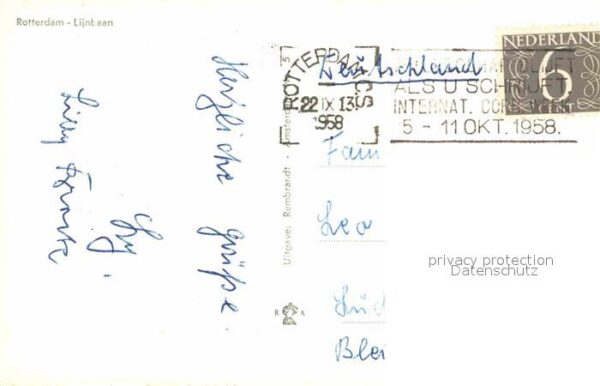 Rotterdam - Lijnbaan
Herzliche Grüße
Uitgave: Rembrandt - Amsterdam
R A
ROTTERDAM CS
22 IX 13
1958
5
NEDERLAND
6
CENT
ALS U SCHRIJFT
INTERNAT. CORR. WEEK
5 - 11 OKT. 1958.
Deutschland
Fam
Leo
Lud
Blei
privacy protection
Datenschutz